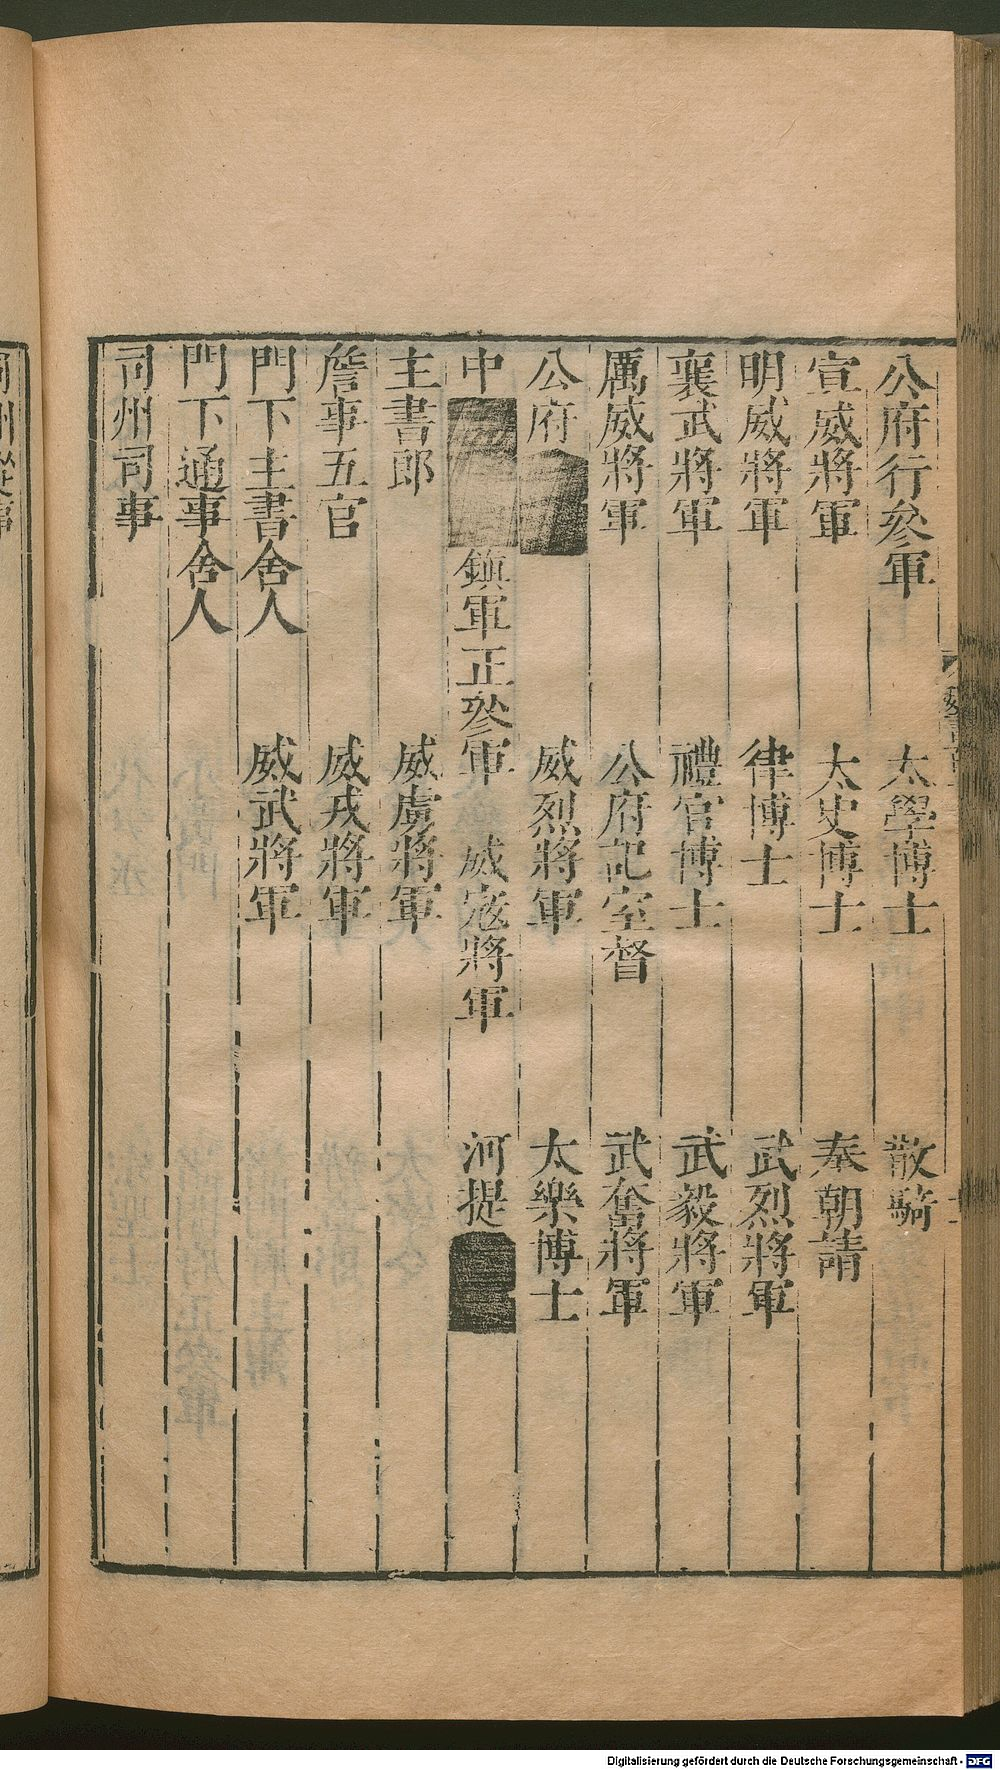 公府行參軍　太學博士　散騎
宣威將軍　太史博士　奉朝請
明威將軍　律博士　武烈將軍
襄武將軍　禮官博士　武毅將軍
厲威將軍　公府記室督　武奮將軍
公府　威烈將軍　太樂博士
中　鎭軍正參軍　威寇將軍　河提
主書郎　威虜將軍
詹事五官　威戎將軍
門下主書舍人　威武將軍
門下通事舍人
司州司事
司州從事
Digitalisierung gefördert durch die Deutsche Forschungsgemeinschaft - DFG